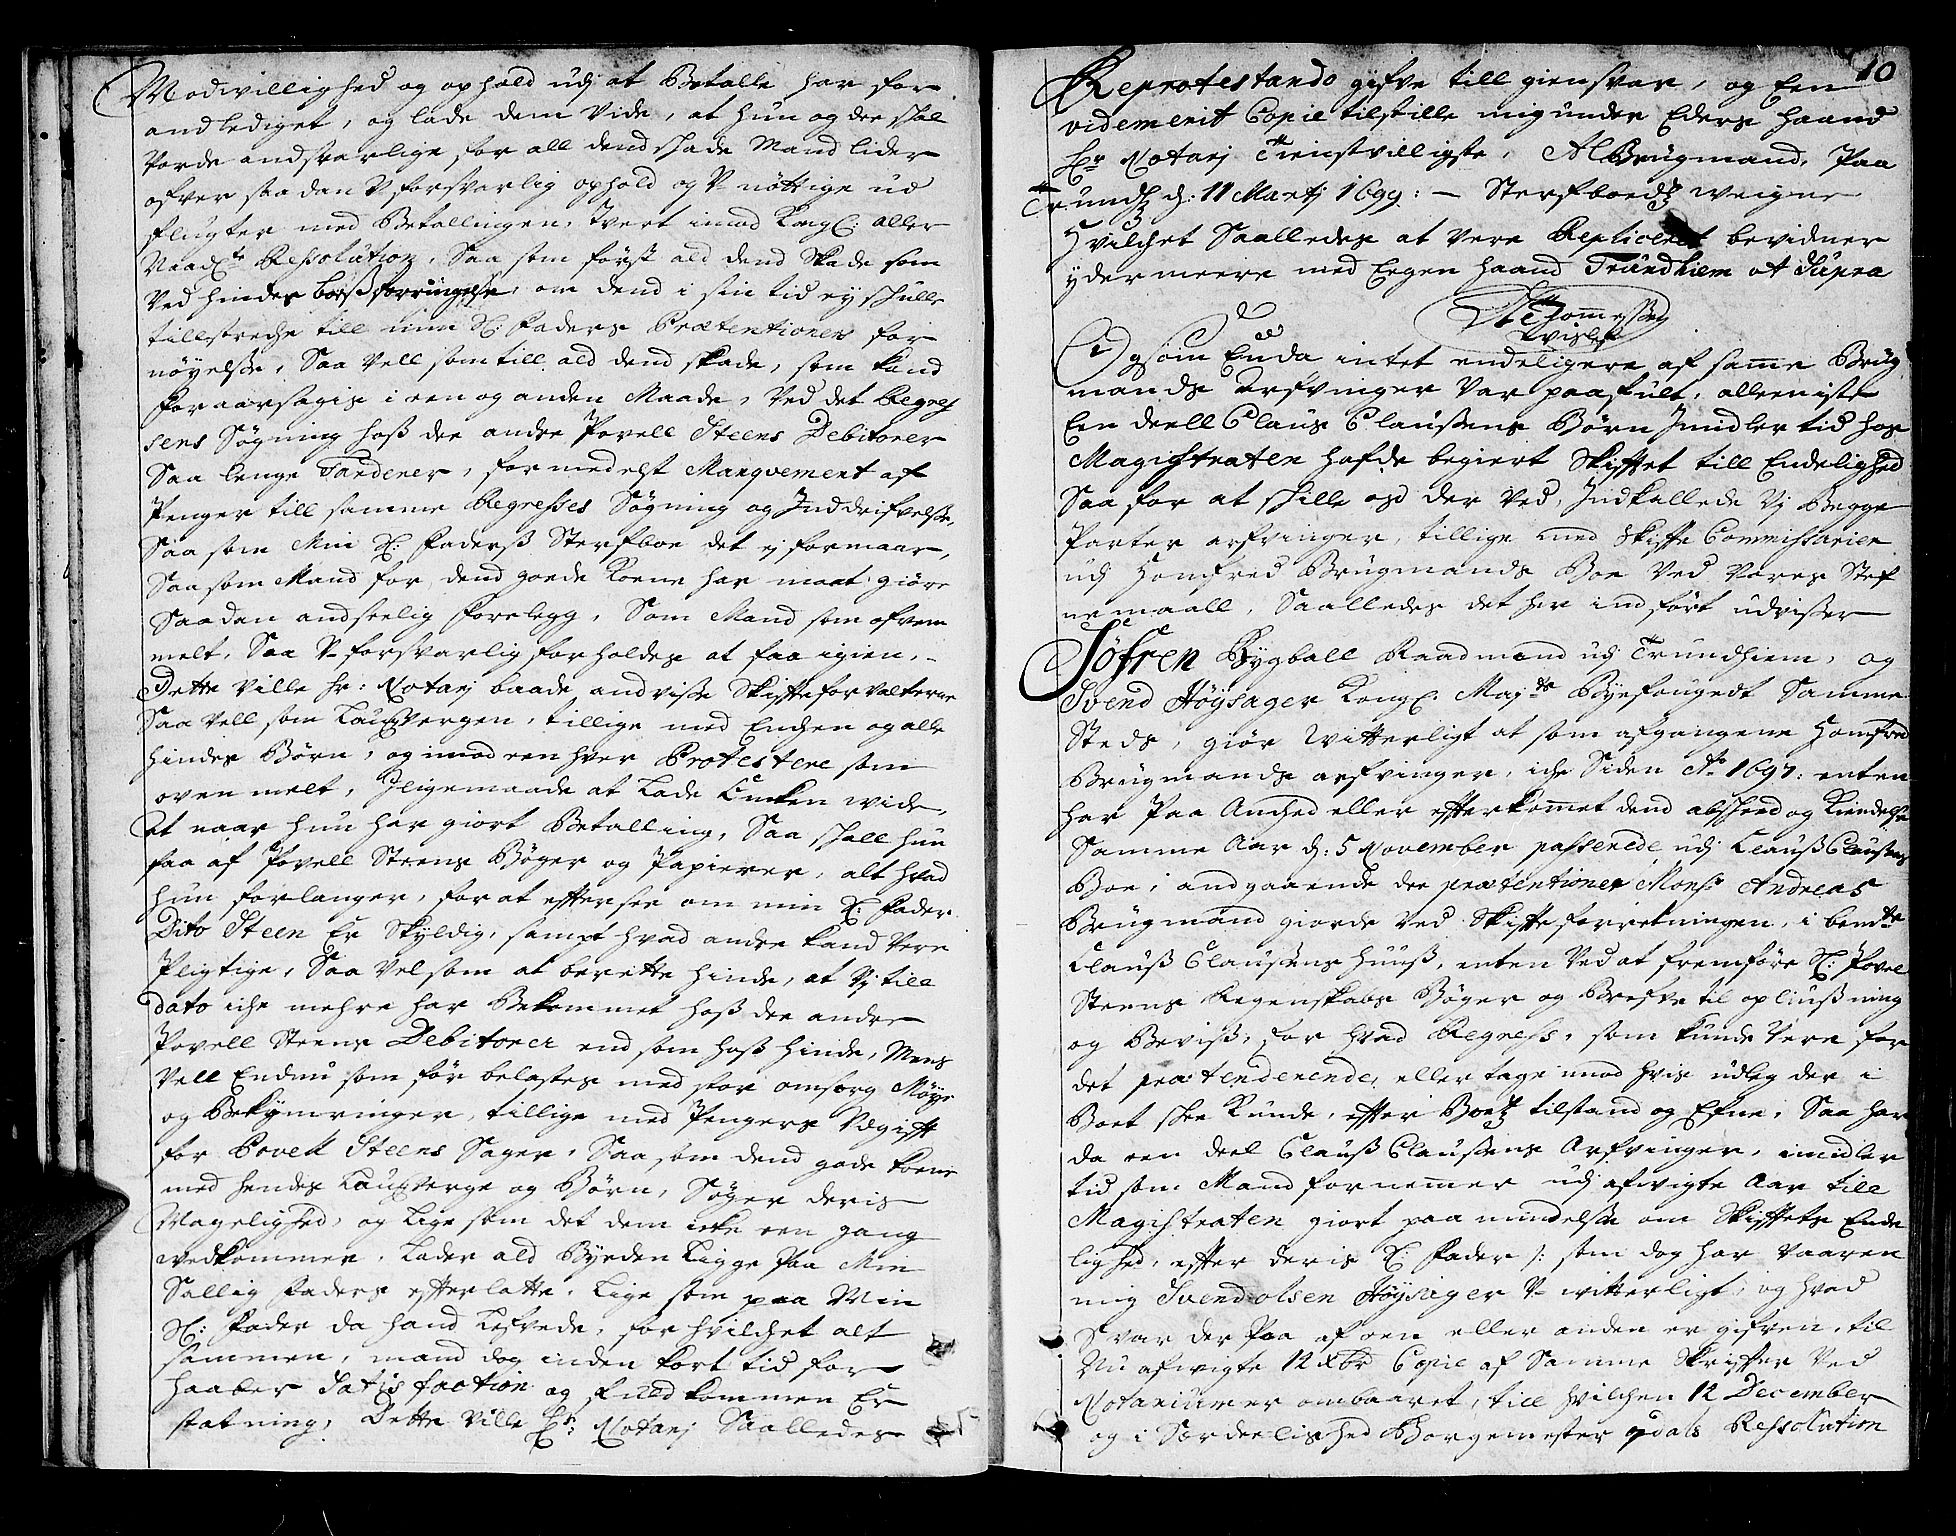 Modvillighed og ophold udj at Betalle har for
andlediget, og lade dem vide, at hun og dee skal
vorde andsvarlige for all dend skade Mand lider
ofver saadan U-forsvarlig ophold og U-nöttige ud
flugter med Betallingen, tvert imod Kongl: aller
Naadste Ressolution, Saa som först ald dend Skade som
ved hindes boeß forringelse, om dend i sin tid ej skulle
tillstreche till min Sl: Faders Prætentioners for
nöyelse, Saa vell som till ald dend skade, som kand
foraarsagis i een og anden Maade, ved det Regres
sens Sögning hoß dee andre Povell Steens Debitorer
Saa lenge Tarderer, formedelst Manqvement af
Penger till samme Regresses Sögning og Inddrifvelse,
Saa som Min Sl: Faderß Sterfboe det ej formaar,
Saa som Mand for dend goede Kone har maat giöre
Saadan andseelig forelegg, Som Mand som ofven
melt, Saa U-forsvarlig forholdes at faa igien,
Dette ville hr: Notarj baade andvise Skifteforvalterne
Saa vell som Laugvergen, tillige med Enchen og alle
hindes Börn, og imod een hver Protestere som
oven melt, Iligemaade at Lade Encken wide,
at naar hun har giort Betalling, Saa skall hun
faa af Povell Steens Böger og Papierer, alt hvad
hun forlanger, for at effter see om min Sl: Fader
Dito Steen Er Skyldig, sampt hvad andre kand vere
Pligtige, Saa vel som at berette hinde, at Vj till
dato iche mehre har Bekommet hoß dee andre
Povell Steens Debitorer end som hoß hinde, Mens
vell Endnu som för belastes med stor omsorg Möye
og Bekymringer, tillige med Pengers Udgift
for Povell Steens Sager, Saa som dend gode kone
med hendes Laugverge og Börn, Söger deris
Magelighed, og lige som det dem icke een gang
wedkommer, Lader ald Byrden Ligge paa Min
Sallig Faders effterlatte, Lige som paa Min
Sl: Fader da hand Lefvede, for hvilchet alt
sammen, mand dog inden kort tid for
haaber Satisfaction og fuldkommen Er
statning, Dette ville hr: Notarj Saalledes
10
Reprotestando gifve till giensvar, og Een
videmerit Copie tilstille mig under Eders haand
hr Notarj Tienstvilligste, A Brügmand, Paa
Trundh d: 11 Martj 1699: – Sterfboedß weigne
Hvilchet Saalledes at vere Repliceret bevidner
yder meere med Eegen haand Trundhiem ut Supra
Og som Enda intet endeligere af samme Brüg
mands Arfvinger var paafult, alleeniste
Een deell Claus Claussens Börn Imidler tid hos
Magistraten hafde begiert Skifftet till Endelighed
Saa for at skille oß der ved, Indkallede vj Begge
Parter arfvinger, tillige med Skiffte Commissarier
udj Homfred Brügmands Boe ved vores Stef
nemaall, Saalledes det her indfört udviser
Söfren Bygball Raadmand udj Trundhiem, og
Svend Höysager Kongl: Majts Byefougedt Samme
Steds, giör witterligt at som afgangene Homfred
Brügmands arfvinger, iche Siden Ao 1697: enten
har Paa Anched eller effterkommet dend absheed og Kiendelse
Samme Aar d: 5 November passerede udj Clauß Claussens
Boe, andgaaende dee prætentioner Monsr Andreas
Brügmand giorde ved Skiffteforretningen, i bemte
Clauß Claussens huuß, enten ved at fremföre Sl: Povel
Steens Regenskabs Böger og Brefve til opliußning
og Beviß, for hvad Regress, som kunde vere for
det prætenderende, eller tage imod hvis udleg der i
Boet skee kunde, effter Boets tilstand og Efne, Saa har
da een deel Clauß Claussens Arfvinger, imidler
tid som Mand fornemmer udj afvigte Aar till
Magistraten giort paamindelse om Skifftets Ende
lighed, effter deris Sl: Fader /: som dog har vaaren
mig Svend olsen Höysager U-witterligt, og hvad
Svar der Paa af een eller anden er gifven, til
Nu afvigte 12 Xbr Copie af Samme Skriffter ved
Notarium er ombaaret, till hvilchen 12 December
og i Særdeelished Borgemester Resolution